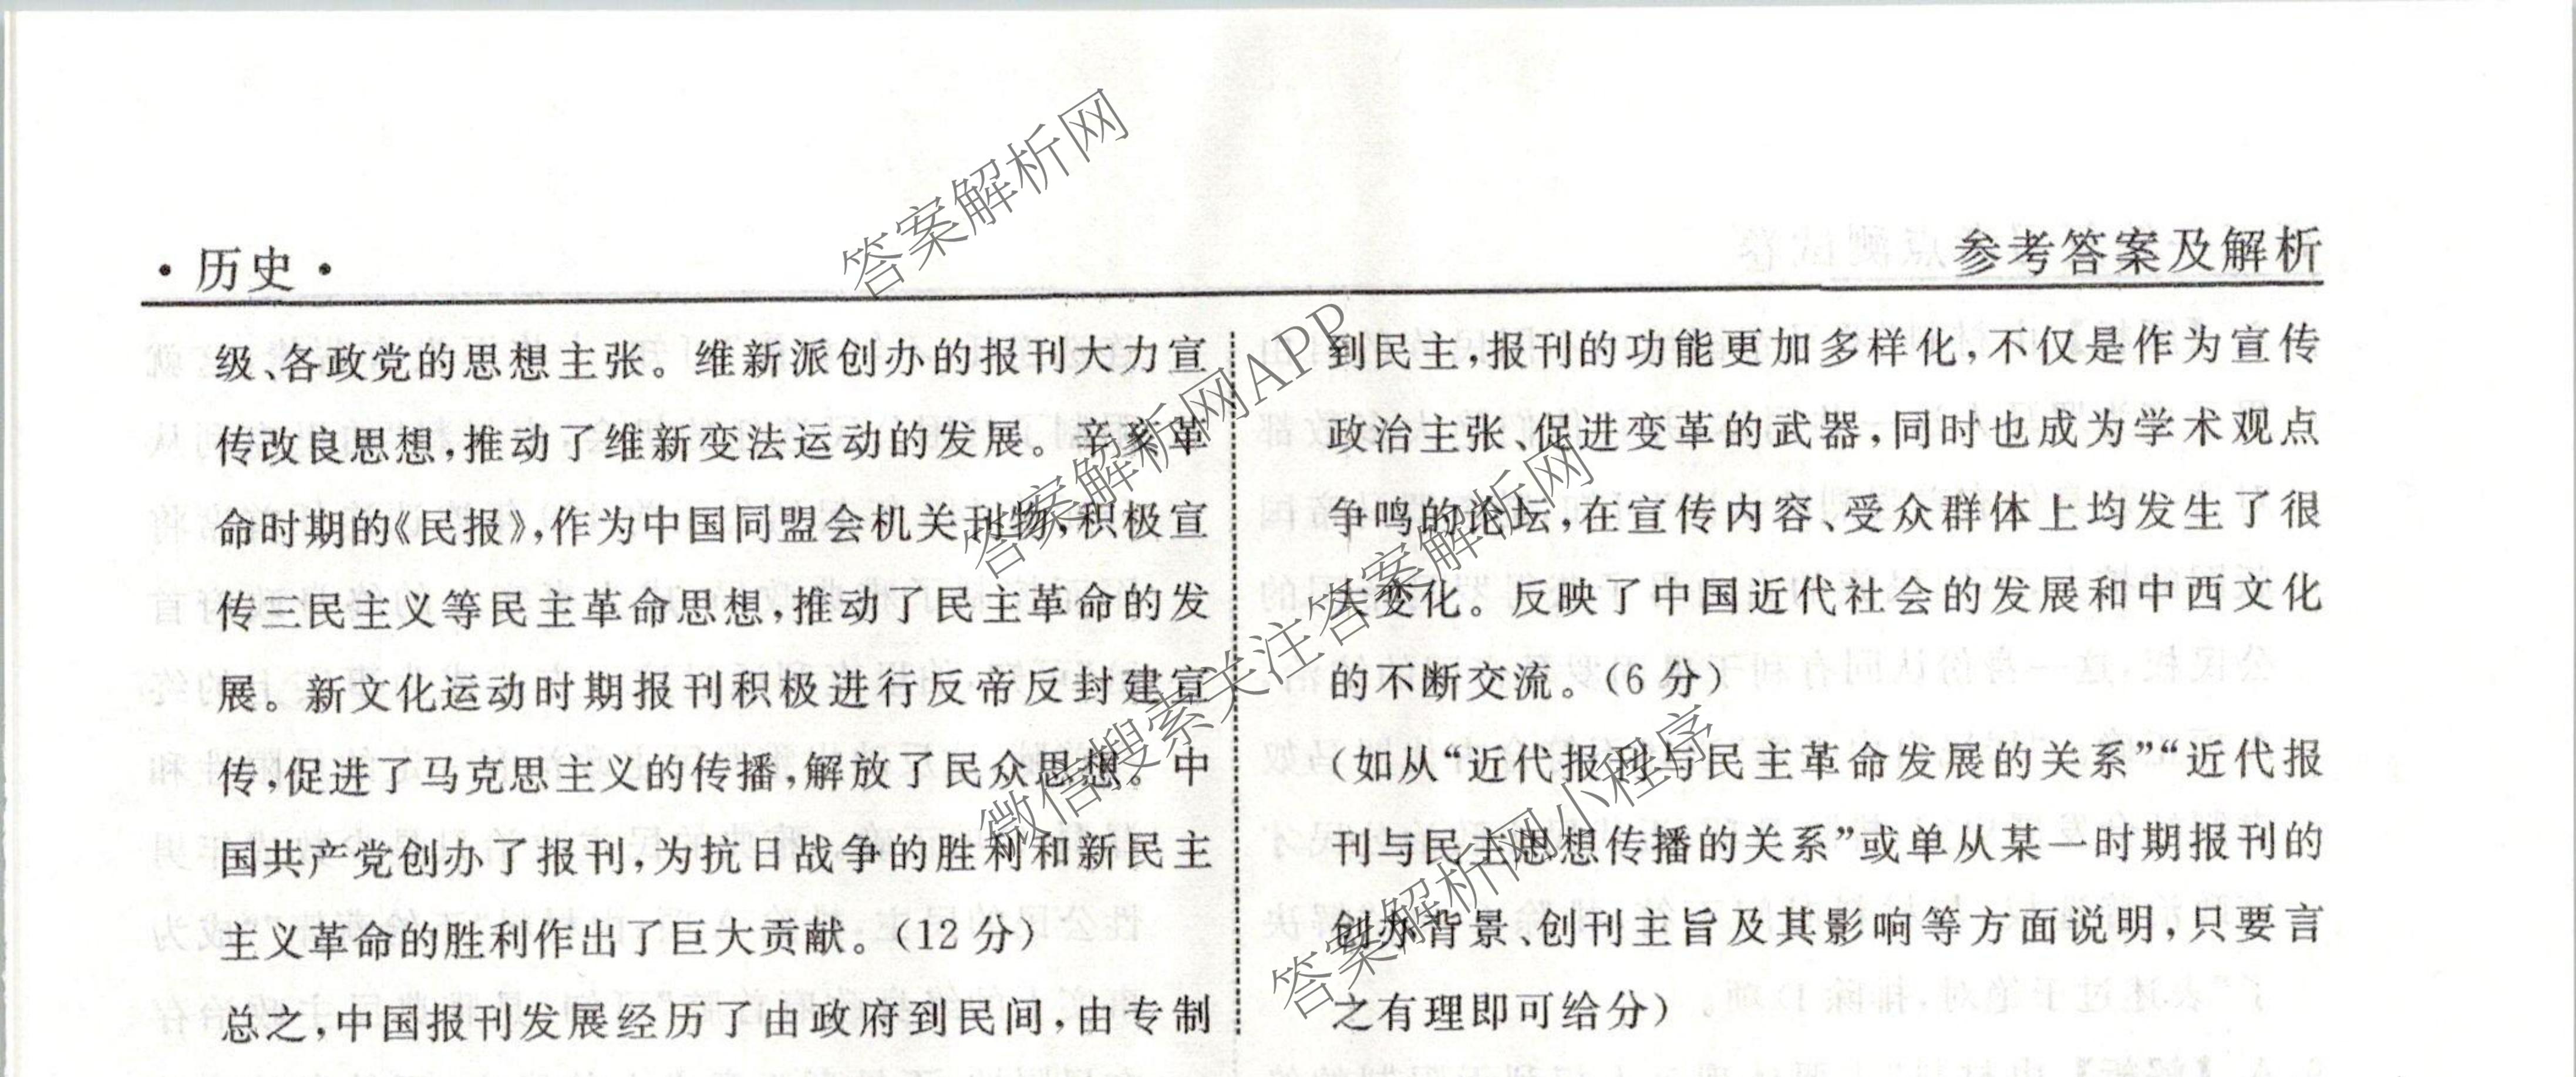 ·历史·
参考答案及解析
级、各政党的思想主张。维新派创办的报刊大力宣
传改良思想,推动了维新变法运动的发展。辛亥革
命时期的《民报》,作为中国同盟会机关刊物,积极宣
传三民主义等民主革命思想,推动了民主革命的发
展。新文化运动时期报刊积极进行反帝反封建宣
传,促进了马克思主义的传播,解放了民众思想。中
国共产党创办了报刊,为抗日战争的胜利和新民主
主义革命的胜利作出了巨大贡献。(12 分)
总之,中国报刊发展经历了由政府到民间,由专制
到民主,报刊的功能更加多样化,不仅是作为宣传
政治主张、促进变革的武器,同时也成为学术观点
争鸣的论坛,在宣传内容、受众群体上均发生了很
大变化。反映了中国近代社会的发展和中西文化
的不断交流。(6 分)
(如从“近代报刊与民主革命发展的关系”“近代报
刊与民主思想传播的关系”或单从某一时期报刊的
创办背景、创刊主旨及其影响等方面说明,只要言
之有理即可给分)
答案解析网
答案解析网APP
微信搜索关注答案解析网
答案解析网小程序